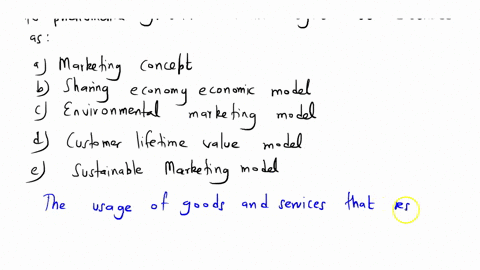 as:
a) Marketing concept
b) Sharing economy economic model
c) Environmental marketing model
d) Customer lifetime value model
e) Sustainable Marketing model
The usage of goods and services that res